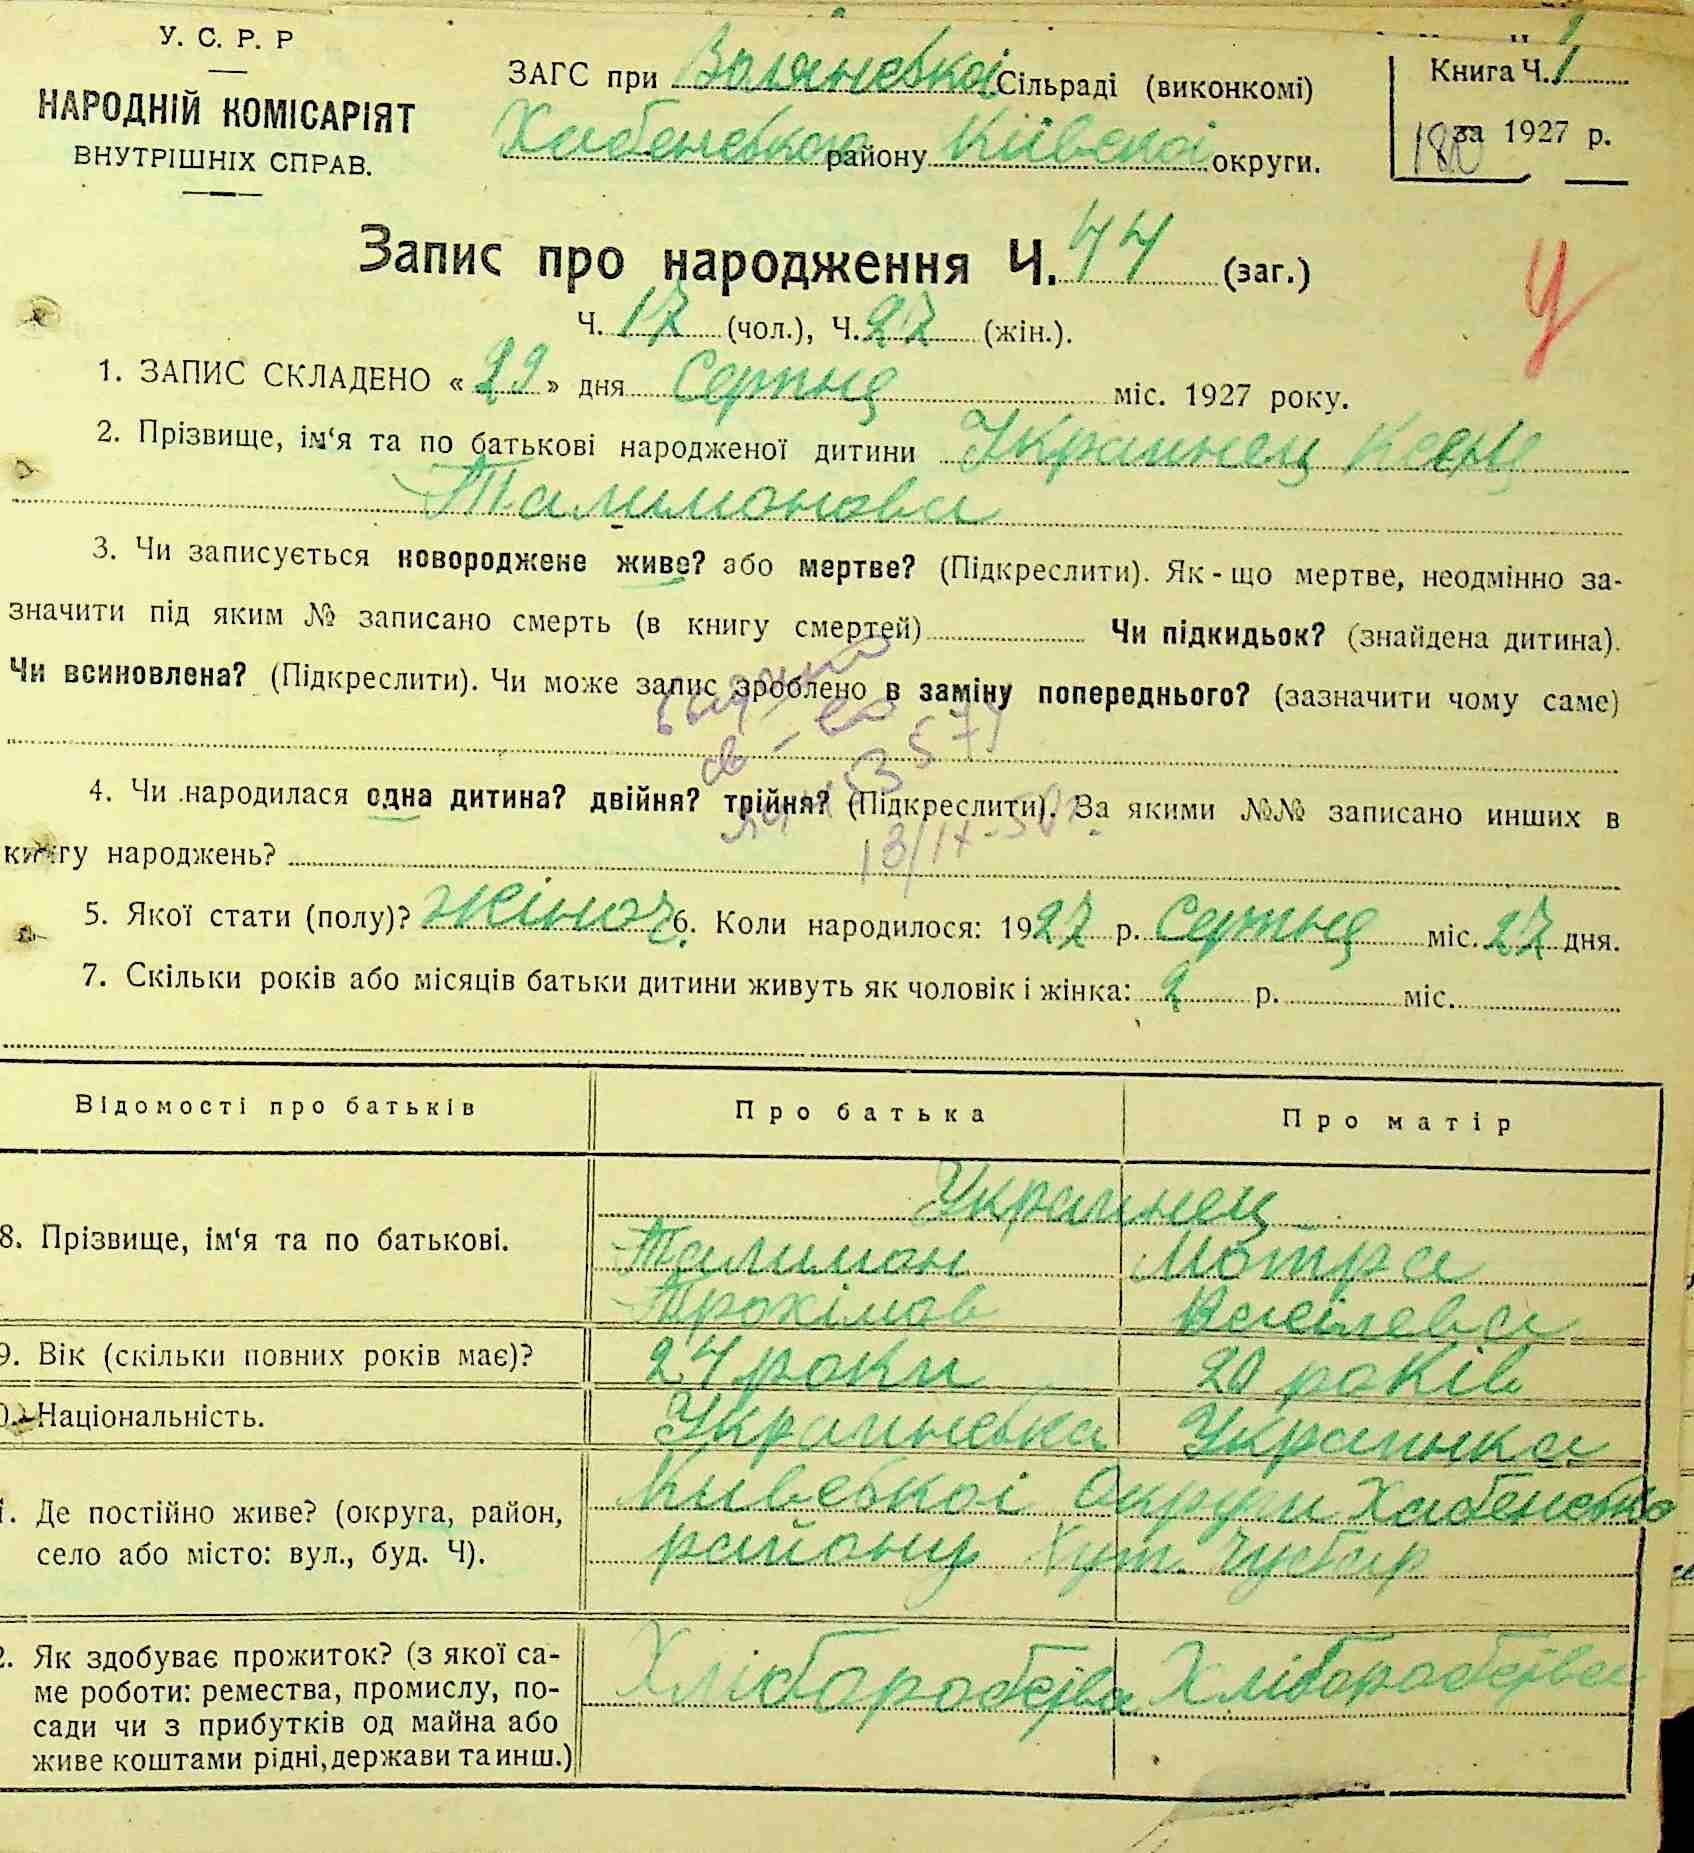 У. С. Р. Р
НАРОДНІЙ КОМІСАРІЯТ
ВНУТРІШНІХ СПРАВ.
ЗАГС при Волянської Сільраді (виконкомі)
Хабенського району Київскоі округи.
Книга Ч. 1
за 1927 р.
180
Запис про народження Ч. 44 (заг.)
Ч. 17 (чол.), Ч. 27 (жін.).
1. ЗАПИС СКЛАДЕНО « 29 » дня Серпня міс. 1927 року.
2. Прізвище, ім‘я та по батькові народженої дитини Украинец Ксеня
Талимонова
3. Чи записується новороджене живе? або мертве? (Підкреслити). Як-що мертве, неодмінно за-
значити під яким № записано смерть (в книгу смертей) Чи підкидьок? (знайдена дитина).
Чи всиновлена? (Підкреслити). Чи може запис зроблено в заміну попереднього? (зазначити чому саме)
4. Чи народилася одна дитина? двійня? трійня? (Підкреслити). За якими №№ записано инших в
книгу народжень?
5. Якої стати (полу)? Жіноч. 6. Коли народилося: 1927 р. Серпня міс. 27 дня.
7. Скільки років або місяців батьки дитини живуть як чоловік і жінка: 2 р. міс.
Відомості про батьків Про батька Про матір
Украинец
8. Прізвище, ім‘я та по батькові. Талимон Мотра
Трохімов Васілева
9. Вік (скільки повних років має)? 24 роки 20 років
0. Національність. Украинська Украинка
1. Де постійно живе? (округа, район, Кивської Округи Хабенсько
село або місто: вул., буд. Ч). району Хут. Чубар
2. Як здобуває прожиток? (з якої са- Хліборобства Хліборобства
ме роботи: ремества, промислу, по-
сади чи з прибутків од майна або
живе коштами рідні, держави та инш.)